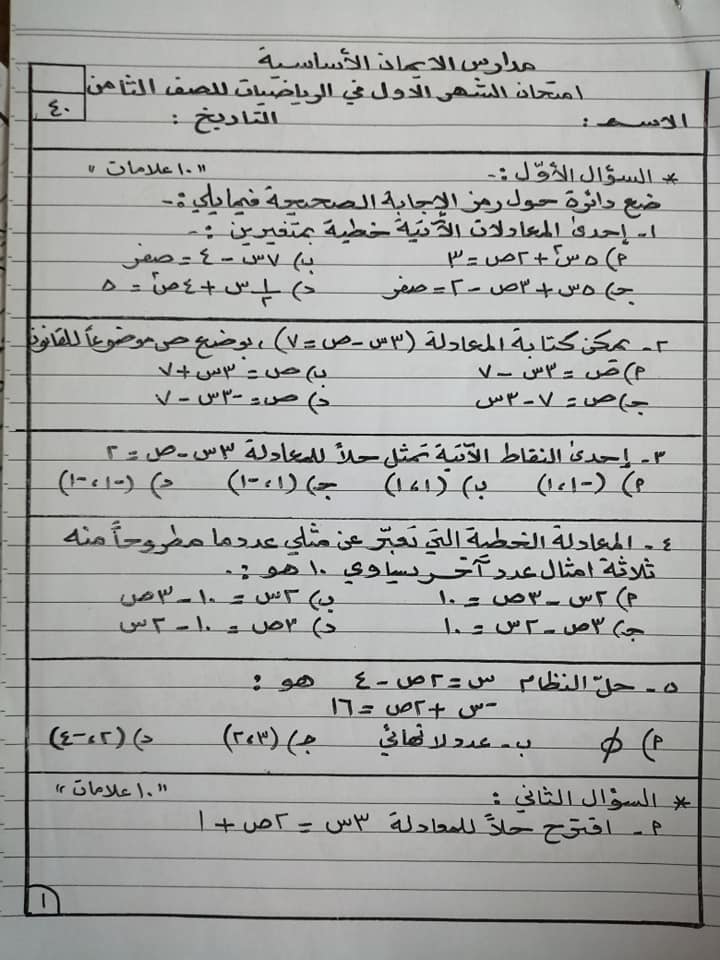 مدارس الإيمان الأساسية
امتحان الشهر الاول في الرياضيات للصف الثامن
٤٠
الاسم : التاريخ :
* السؤال الأوّل :- "١٠ علامات"
ضع دائرة حول رمز الإجابة الصحيحة فيما يلي :-
١- إحدى المعادلات الآتية خطية بمتغيرين :-
م) ٥س٢ + ٢ص = ٣ ب) ٧س - ٤ = صفر
جـ) ٥س + ٣ص - ٢ = صفر د) ١/٢ س + ٤ص٢ = ٥
٢- يمكن كتابة المعادلة (٣س - ص = ٧) ، بوضع ص موضوعاً للقانون
م) ص = ٣س - ٧ ب) ص = ٣س + ٧
جـ) ص = ٧ - ٣س د) ص = -٣س - ٧
٣- إحدى النقاط الآتية تمثل حلاً للمعادلة ٣س - ص = ٢
م) (-١ ، ١) ب) (١ ، ١) جـ) (١ ، -١) د) (-١ ، -١)
٤- المعادلة الخطية التي تعبّر عن مثلي عدد ما مطروحاً منه
ثلاثة امثال عدد آخر يساوي ١٠ هو :-
م) ٢س - ٣ص = ١٠ ب) ٢س = ١٠ - ٣ص
جـ) ٣ص - ٢س = ١٠ د) ٣ص = ١٠ - ٢س
٥- حلّ النظام س = ٢ص - ٤ هو :
-س + ٢ص = ١٦
م) ϕ ب- عدد لا نهائي جـ) (٢،٣) د) (٢ ، -٤)
* السؤال الثاني : "١٠ علامات"
م- اقترح حلاً للمعادلة ٣س = ٢ص + ١
١